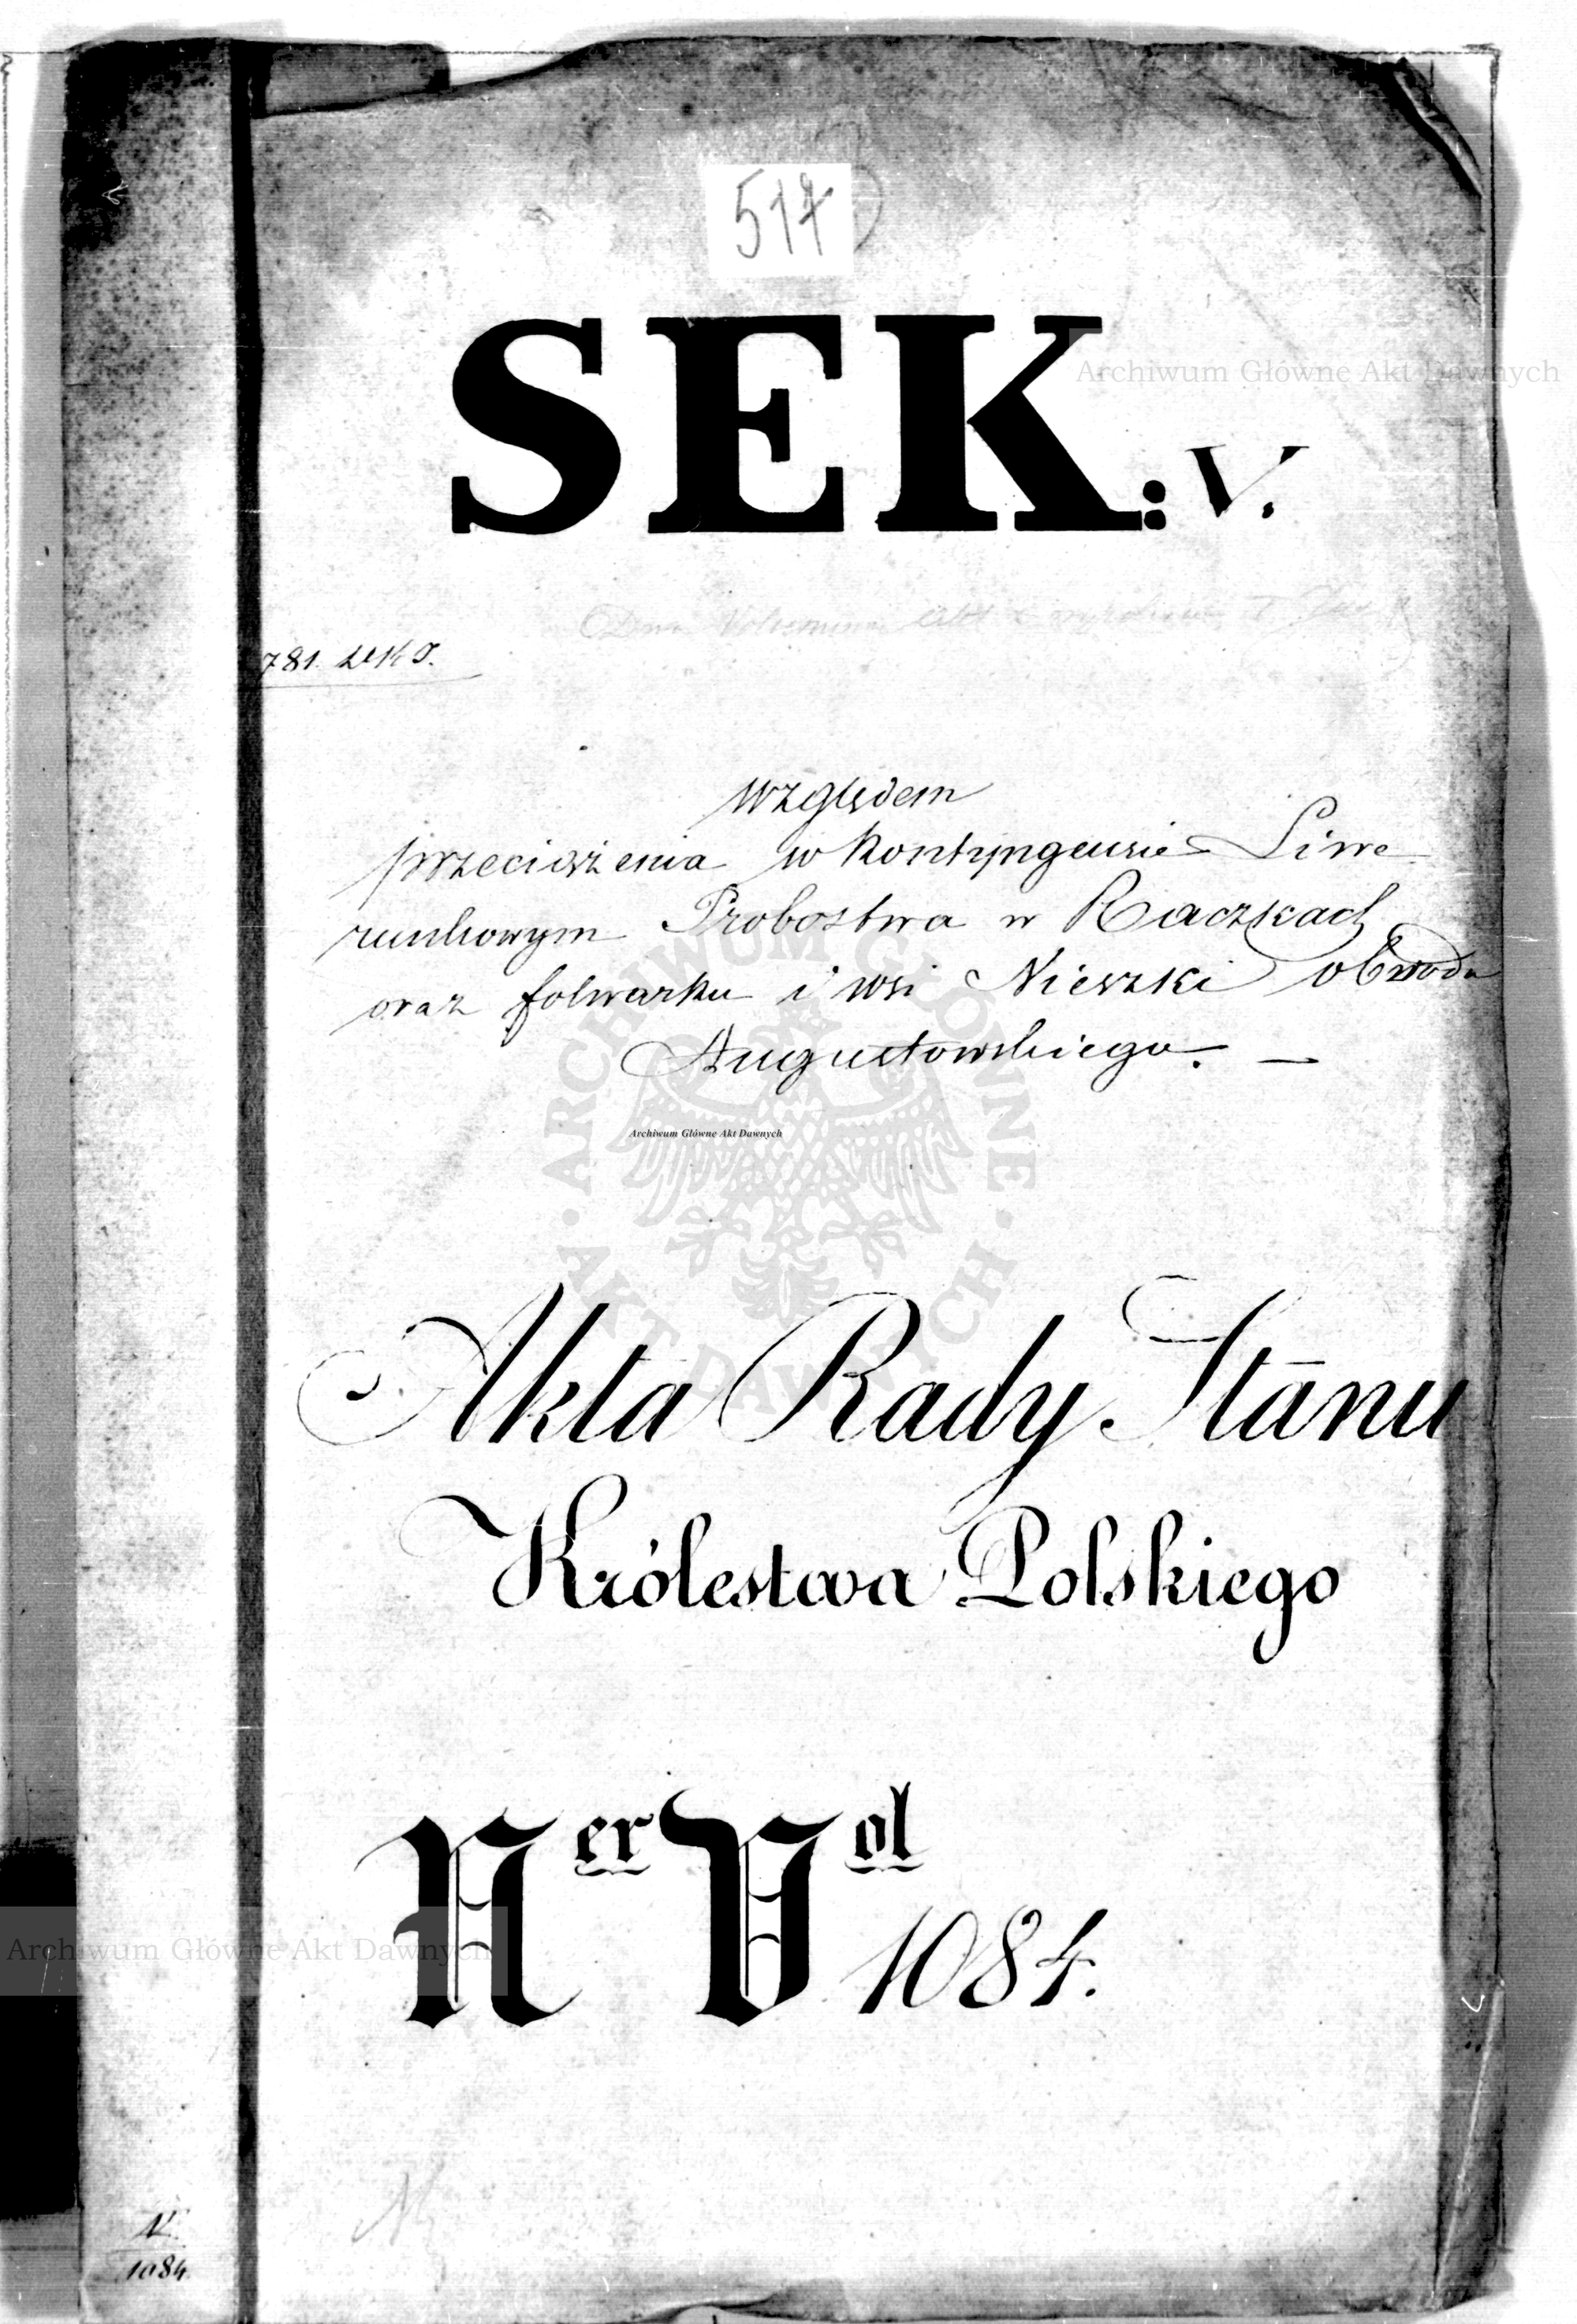 517
SEK: V.
Archiwum Główne Akt Dawnych
781.
względem
przeciążenia w kontyngensie Liwe
runkowym Probostwa w Raczkach
oraz folwarku i wsi Nieszki obwodu
Augustowskiego. —
ARCHIWUM GŁÓWNE
· AKT DAWNYCH ·
Archiwum Główne Akt Dawnych
Akta Rady Stanu
Królestwa Polskiego
Ner Vol 1084.
Archiwum Główne Akt Dawnych
N.
1084